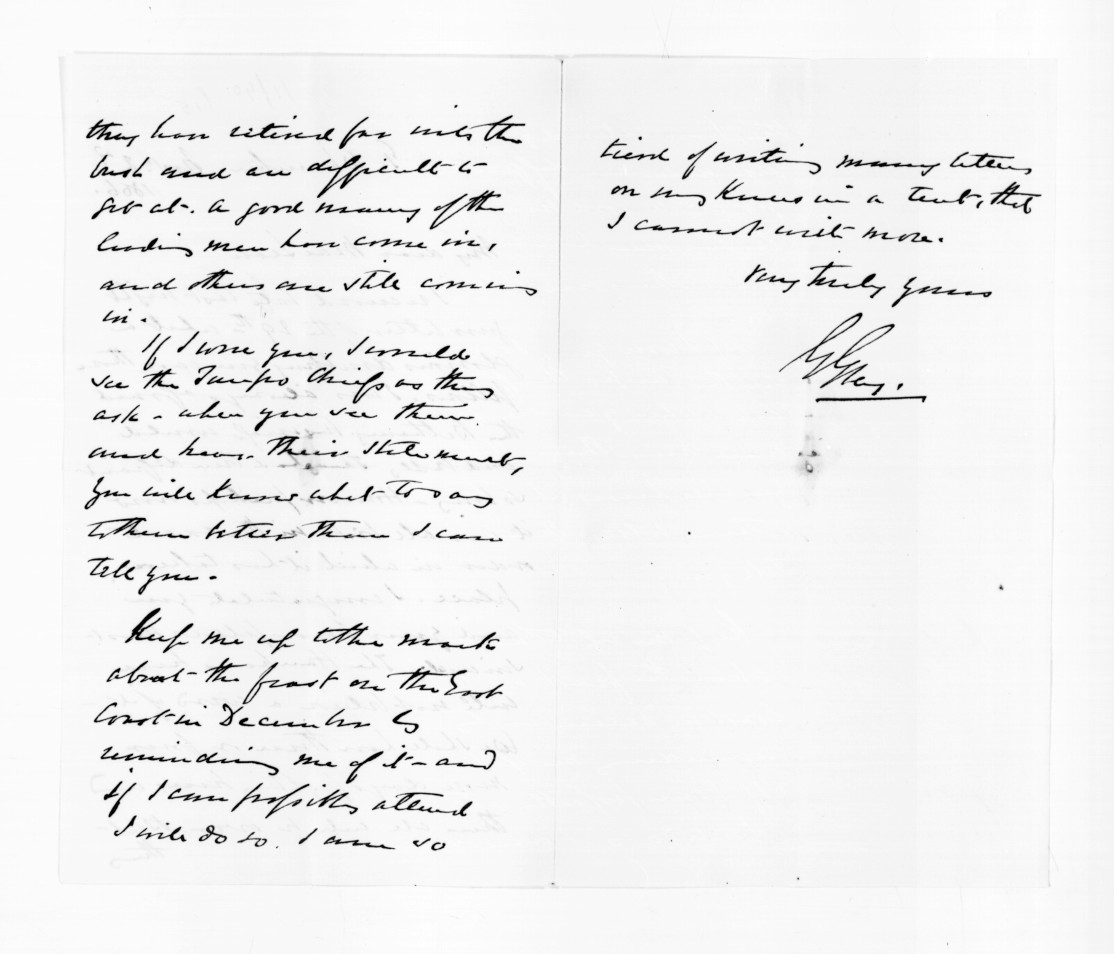 they have retired far into the
bush and are difficult to
get at. A good many of the
leading men have come in,
and others are still coming
in.
If I were you, I would
see the Taupo Chiefs as they
ask - when you see them
and hear their statement,
you will know what to say
to them better than I can
tell you.
Keep me up to the mark
about the feast on the East
Coast in December by
reminding me of it - and
if I can possibly attend
I will do so. I am so
tired of writing many letters
on my knees in a tent, that
I cannot write more.
Very truly yours
G Grey.